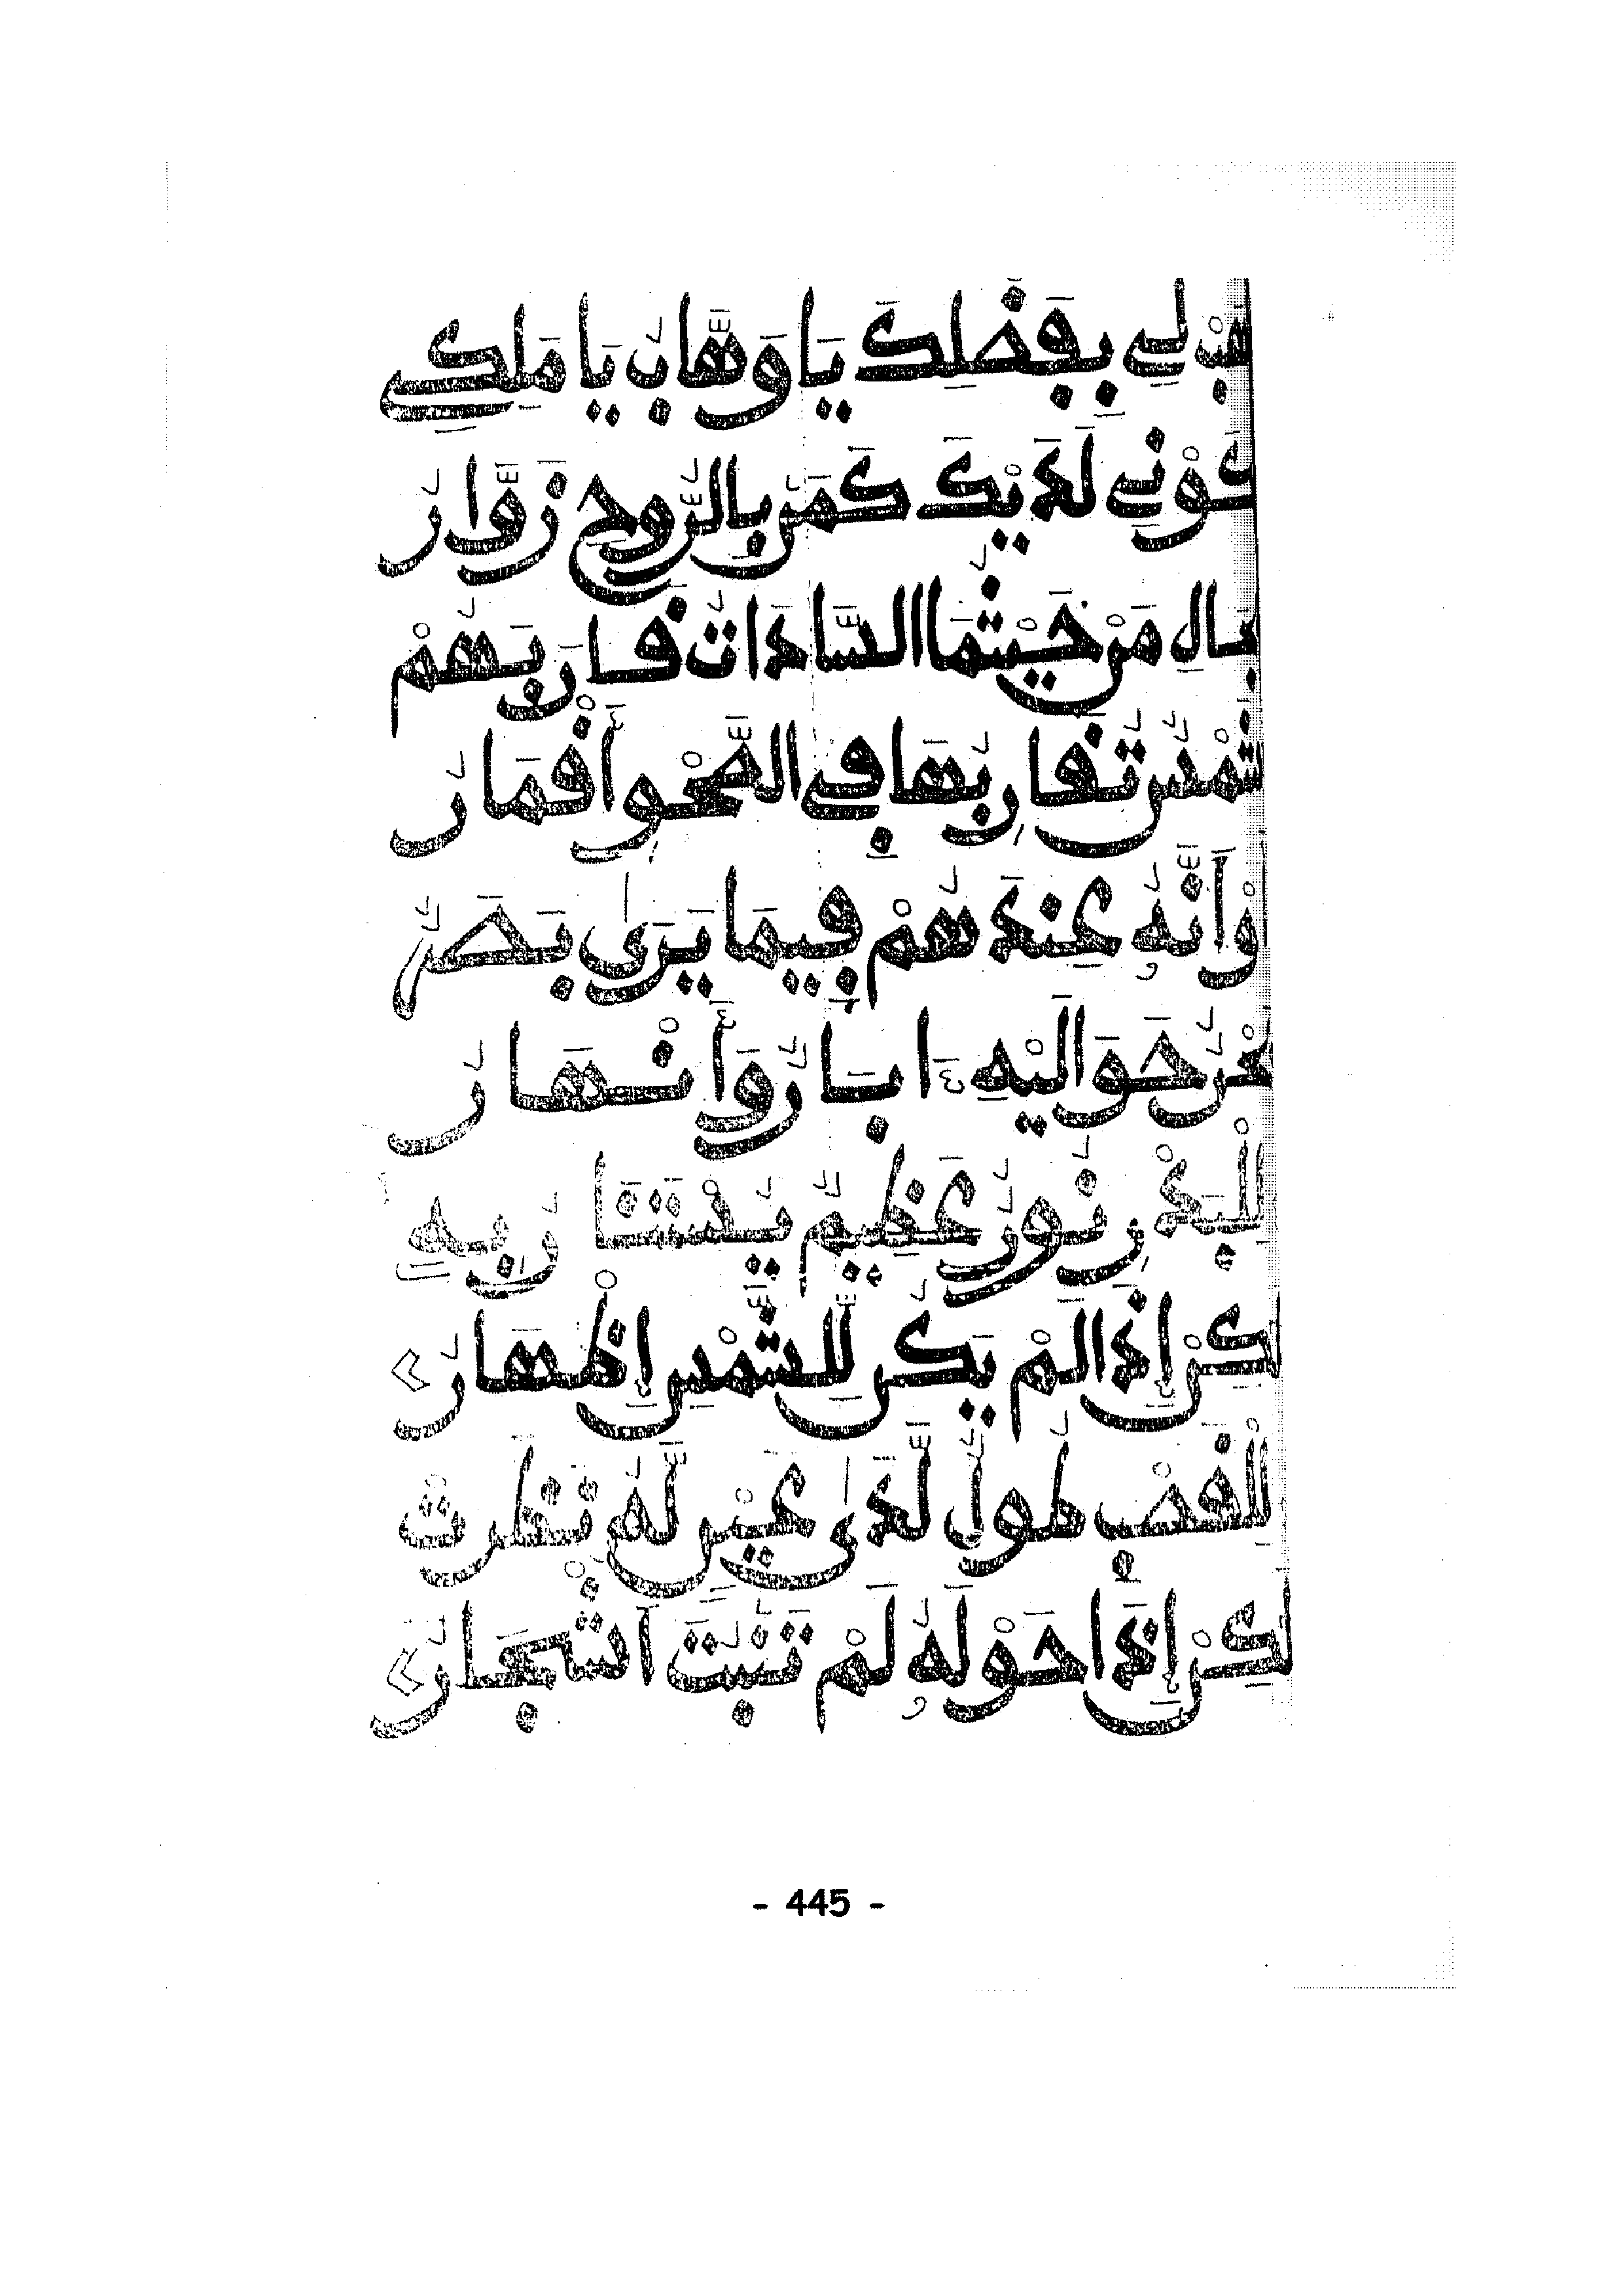 هَبْ لِي بِفَضْلِكَ يَا وَهَّابُ يَا مَلِكِي
عَوْنِي لَدَيْكَ كَمَنْ بِالرُّوحِ زَوَّارُ
مَالِ مَنْ حَيْثُمَا السَّادَاتُ فَارَبَهُمْ
شَمْسٌ تُفَارِبُهَا فِي الصَّحْوِ أَفْمَارُ
وَأَنَّهُ عِنْدَهُمْ فِيمَا يَرَى بَصَرٌ
حَوَالَيْهِ ءَابَارٌ وَأَنْهَارُ
لِلْبَدْرِ نُورٌ عَظِيمٌ يُسْتَنَارُ بِهِ
لَكِنْ إِذَا لَمْ يَكُنْ لِلشَّمْسِ إِظْهَارُ
لِلْفَصْبِ طُولٌ لَدَى عَيْنٍ لَهُ نَظَرَتْ
لَكِنْ إِذَا حَوْلَهُ لَمْ تَنْبُتَ اشْجَارُ
- 445 -